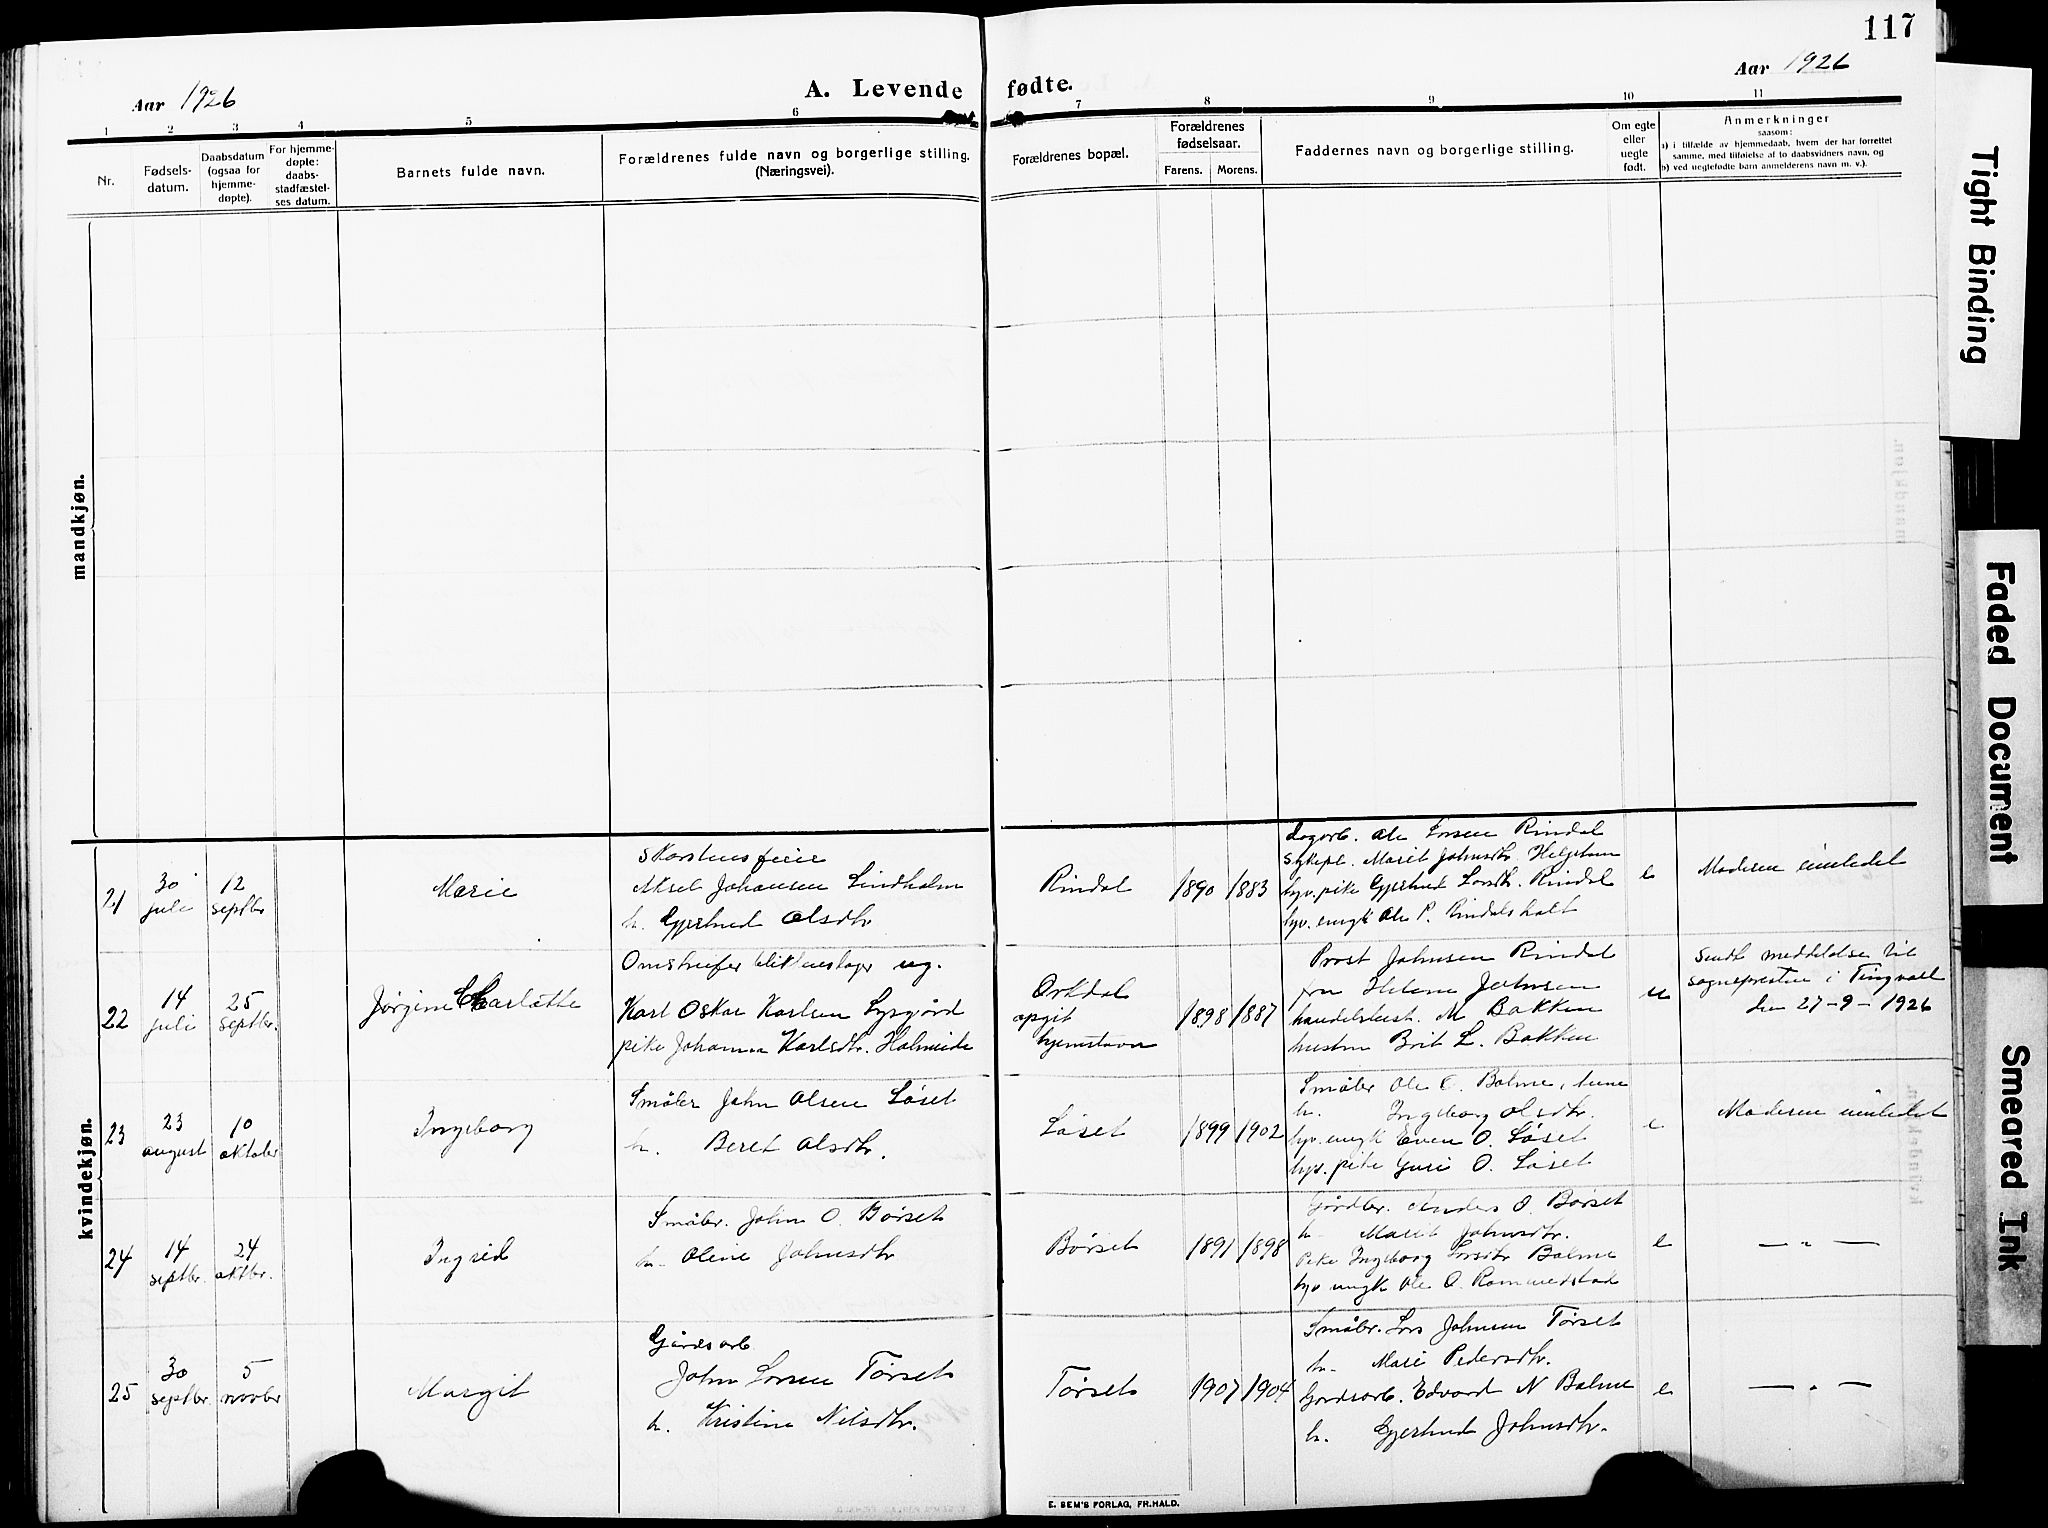 117
Aar 1926
A. Levende fødte.
Aar 1926
1 2 3 4 5 6 7 8 9 10 11
Nr.
Fødsels-
datum.
Daabsdatum
(ogsaa for
hjemme-
døpte).
For hjemme-
døpte:
daabs-
stadfæstel-
ses datum.
Barnets fulde navn.
Forældrenes fulde navn og borgerlige stilling.
(Næringsvei).
Forældrenes bopæl.
Forældrenes
fødselsaar.
Farens. Morens.
Faddernes navn og borgerlige stilling.
Om egte
eller
uegte
født.
Anmerkninger
saasom:
a) i tilfælde av hjemmedaab, hvem der har forrettet
samme, med tilføielse af to daabsvidners navn, og
b) ved uegtefødte barn anmelderens navn m. v.).
mandkjøn.
kvindekjøn.
21
30
juli
12
septbr
Marie
Skorstensfeier
Aksel Johansen Lindholm
h. Gjertrud Olsdtr
Rindal
1890 1883
Dagarb. Ole Larsen Rindal
Sykepl. Marit Johnsdtr. Helgetun
hjv. pike Gjertrud Larsdtr. Rindal
hjv. ungk Ole P. Rindalsholt
e
Moderen innledet
22
14
juli
25
septbr.
Jørgine Charlotte
Omstreifer blikkenslager ug.
Karl Oskar Karlsen Lysgård
pike Johanna Karlsdtr.
Orkdal
opgit
hjemstavn
1898 1887
Prost Johnsen Rindal
fru Helene Johnsen
handelsbest. M Bakken
hustru Brit L. Bakken
u
Sendt meddelelse til
sognepresten i Tingvoll
den 27-9-1926
23
23
august
10
oktober
Ingeborg
Småbr John Olsen Løset
h. Beret Olsdtr.
Løset
1899 1902
Småbr Ole O. Bolme,
h. Ingeborg Olsdtr.
hjv. ungk Even O. Løset
hjv. pike Guri O. Løset
e
Moderen innledet
24
14
septbr.
24
oktbr.
Ingrid
Småbr. John O. Børset
h. Oline Johnsdtr
Børset
1891 1898
Gårdbr. Anders O. Børset
h. Marit Johnsdtr.
Pike Ingeborg Larsdtr Bolme
hjv ungk Ole O. Rommedstad
e
— „ —
25
30
septbr
5
novbr
Margit
Gårdsarb.
John Larsen Tørset
h. Kristine Nilsdtr.
Tørset
1907 1904
Småbr. Lars Johnsen Tørset
h. Mari Pedersdtr.
Gårdsarb. Edvard N Bolme
h. Gjertrud Johnsdtr.
e
— „ —
E. SEM'S FORLAG, FR.HALD.
Tight Binding
Faded Document
Smeared Ink